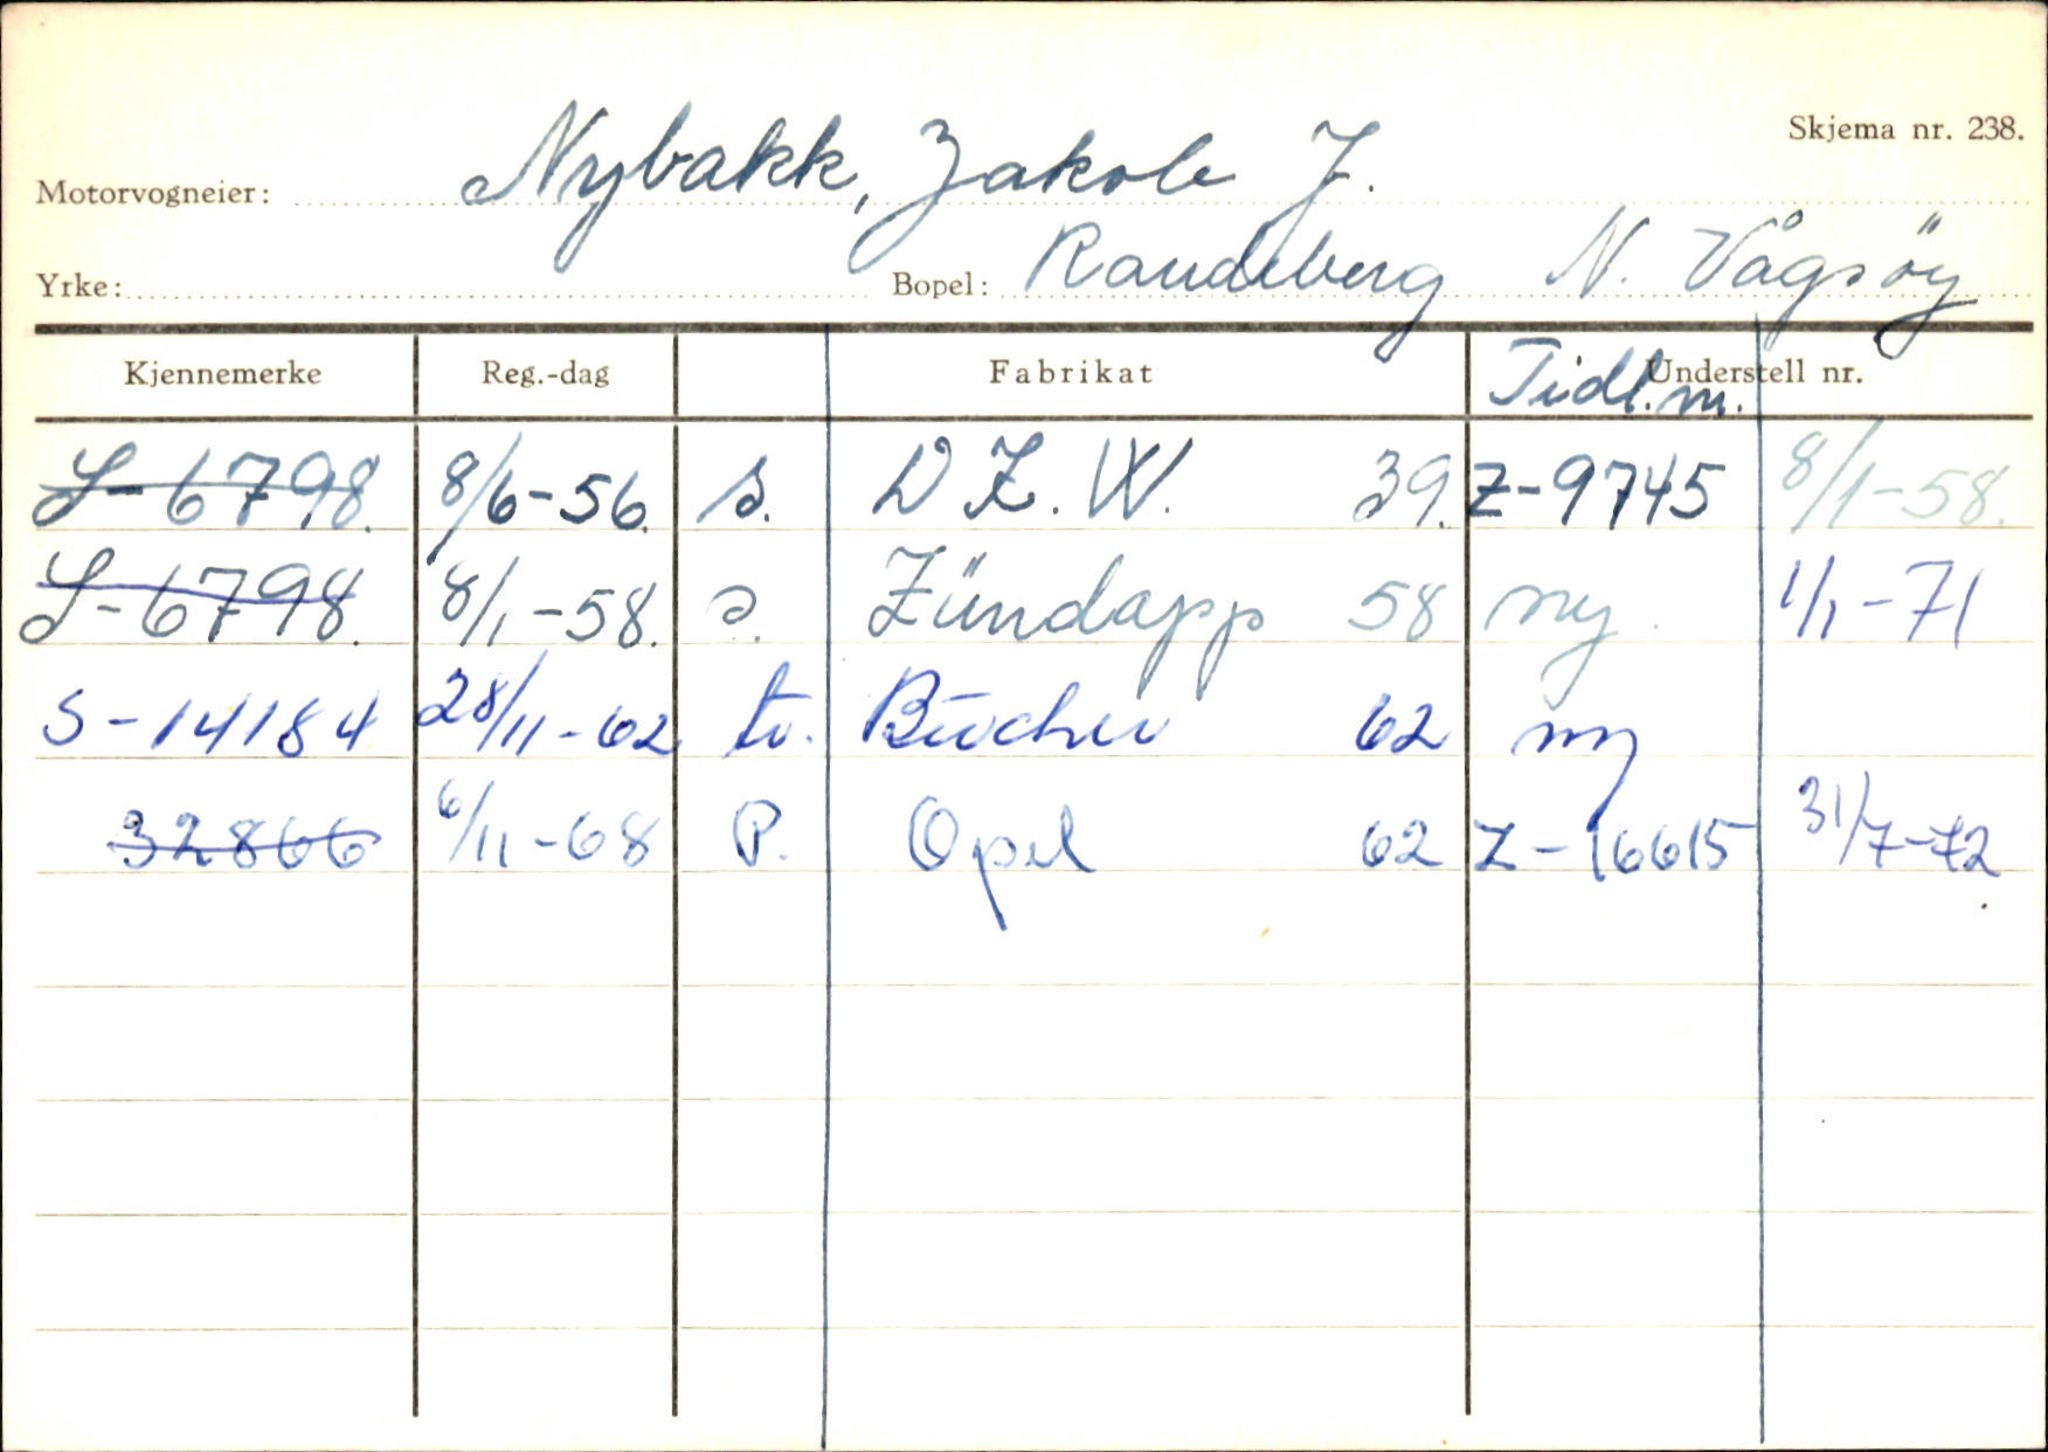 Skjema nr. 238.
Motorvogneier: Nybakk, Jakob J.
Yrke: Bopel: Raudeberg N. Vågsöy
Kjennemerke Reg.-dag Fabrikat Tidl.m. Understell nr.
S-6798. 8/6-56. s. D K. W. 39. Z-9745 8/1-58.
S-6798. 8/1-58. s. Zündapp 58 ny. 1/1-71
S-14184 28/11-62 tr. Bücher 62 ny
32866 6/11-68 P. Opel 62 Z-16615 31/7-72